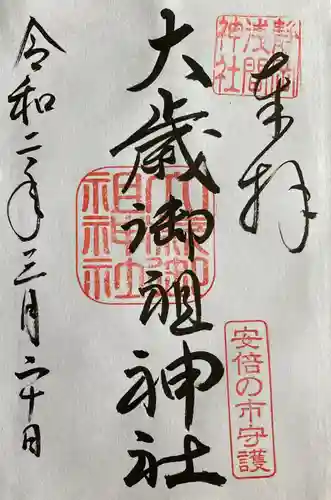 奉拝
大歳御祖神社
令和二年三月二十日
静岡
浅間
神社
大歳御
祖神社
安倍の市守護